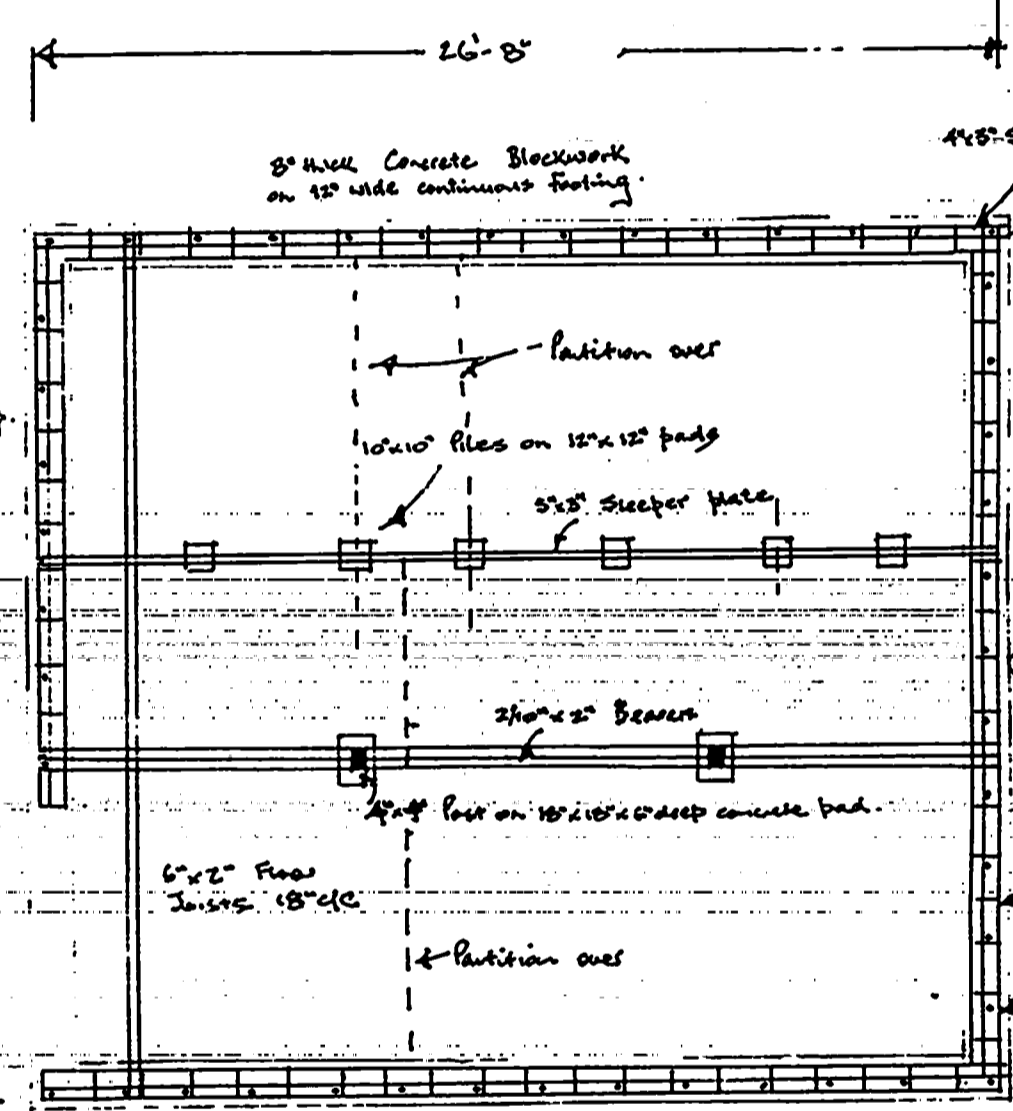 26'-8"
8" thick Concrete Blockwork
on 12" wide continuous footing.
4"x3"
Partition over
10"x10" Piles on 12"x12" pads
3"x3" Sleeper plate
2/10"x2" Bearers
4"x4" Post on 18"x18"x6" deep concrete pad.
6"x2" Floor
Joists 18" c/c
Partition over